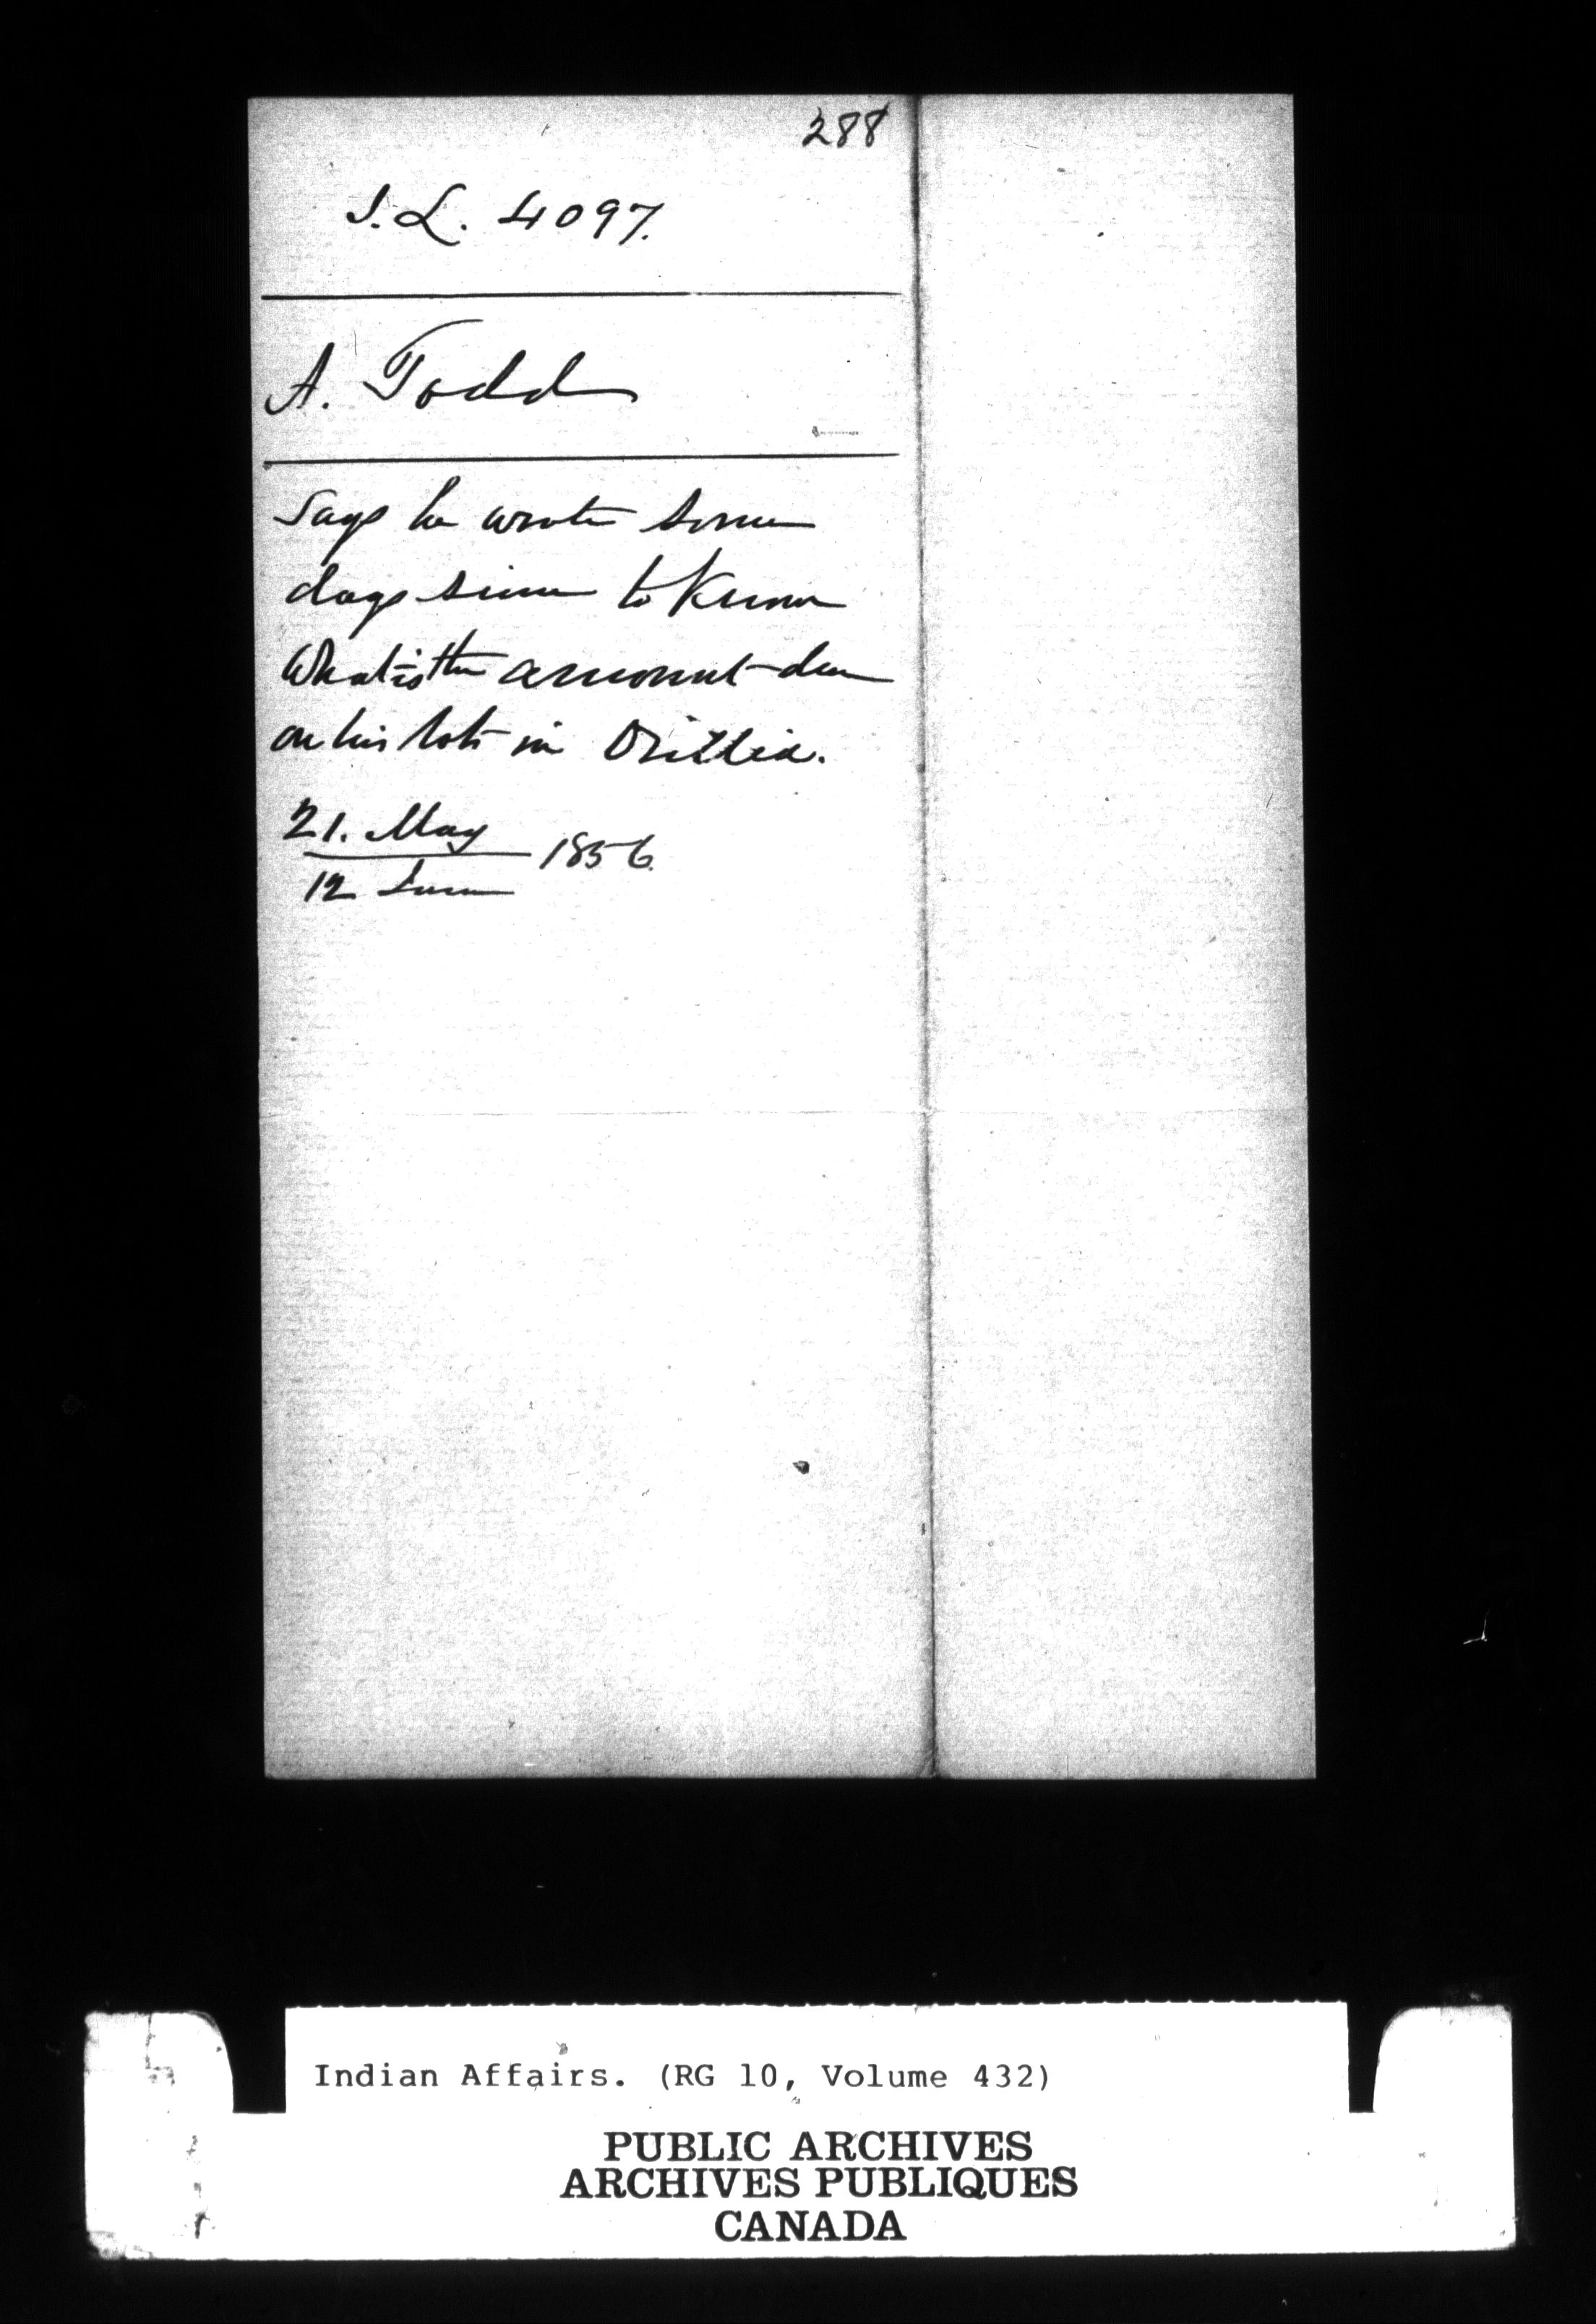 288
I.L. 4097.
A. Todd
Says he wrote some
days since to know
what is the amount due
on his lots in Orillia.
21. May
1856.
12 June
Indian Affairs. (RG 10, Volume 432)
PUBLIC ARCHIVES
ARCHIVES PUBLIQUES
CANADA